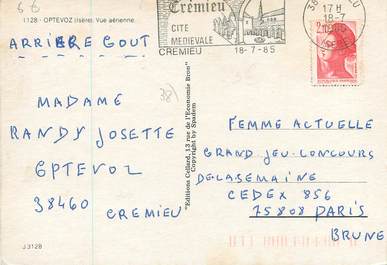 I 128 - OPTEVOZ (Isère) Vue aérienne.
ARRIERE GOUT
MADAME
RANDY JOSETTE
OPTEVOZ
38460
CREMIEU
J 3128
Crémieu
CITE
MEDIEVALE
CREMIEU 18-7-85
17H
18-7
"Editions Cellard, 13 rue de l'Economie Bron"
Copyright by Spadem
FEMME ACTUELLE
GRAND JEU-CONCOURS
DELASEMAINE
CEDEX 856
75808 PARIS
BRUNE